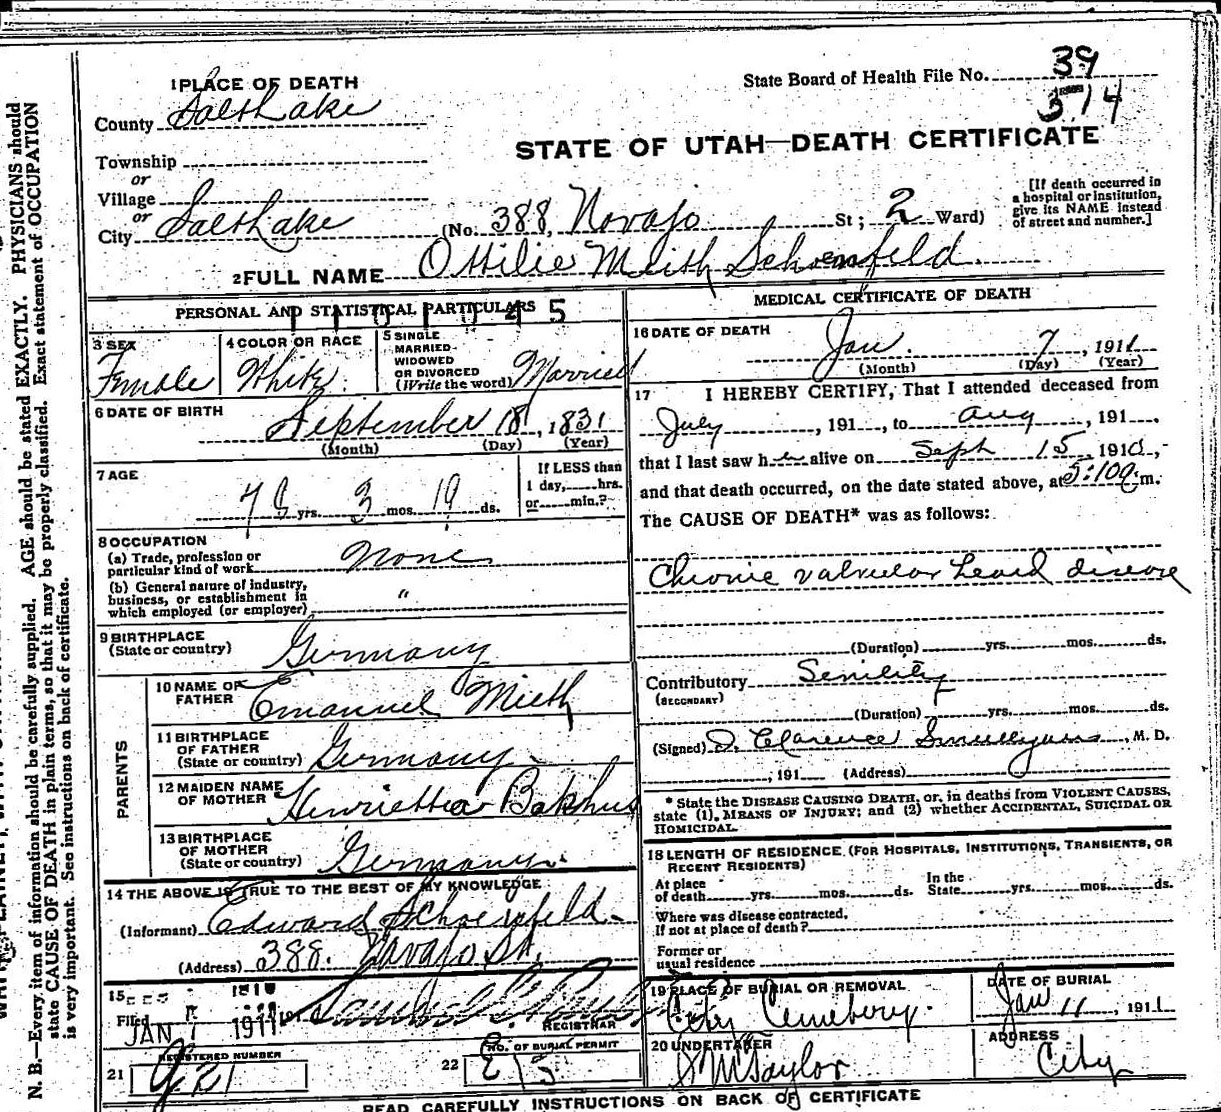 1 PLACE OF DEATH
State Board of Health File No. 39
314
County Salt Lake
STATE OF UTAH—DEATH CERTIFICATE
Township
or
Village
or
City Salt Lake (No. 388, Navajo St; 2 Ward)
[If death occurred in
a hospital or institution,
give its NAME instead
of street and number.]
2 FULL NAME Ottilie Mieth Schoenfeld
PERSONAL AND STATISTICAL PARTICULARS
3 SEX Female
4 COLOR OR RACE White
5 SINGLE
MARRIED
WIDOWED
OR DIVORCED
(Write the word) Married
6 DATE OF BIRTH
September 18, 1831
(Month) (Day) (Year)
7 AGE
79 yrs. 3 mos. 19 ds.
If LESS than
1 day, hrs.
or min.?
8 OCCUPATION
(a) Trade, profession or
particular kind of work None
(b) General nature of industry,
business, or establishment in
which employed (or employer) "
9 BIRTHPLACE
(State or country) Germany
PARENTS
10 NAME OF
FATHER Emanuel Mieth
11 BIRTHPLACE
OF FATHER
(State or country) Germany
12 MAIDEN NAME
OF MOTHER Henrietta Bakhus
13 BIRTHPLACE
OF MOTHER
(State or country) Germany.
14 THE ABOVE IS TRUE TO THE BEST OF MY KNOWLEDGE
(Informant) Edward Schoenfeld
(Address) 388. Navajo St.
15
Filed JAN 1911
REGISTRAR
REGISTERED NUMBER
21
NO. OF BURIAL PERMIT
22
MEDICAL CERTIFICATE OF DEATH
16 DATE OF DEATH
Jan. 7, 1911
(Month) (Day) (Year)
17 I HEREBY CERTIFY, That I attended deceased from
July, 191 , to Aug, 191 .
that I last saw her alive on Sept 15, 1910,
and that death occurred, on the date stated above, at 5:10 a m.
The CAUSE OF DEATH* was as follows:
Chronic valvular heart disease
(Duration) yrs. mos. ds.
Contributory Senility
(SECONDARY)
(Duration) yrs. mos. ds.
(Signed) Clarence, M. D.
, 191 (Address)
* State the DISEASE CAUSING DEATH, or, in deaths from VIOLENT CAUSES,
state (1), MEANS OF INJURY; and (2) whether ACCIDENTAL, SUICIDAL OR
HOMICIDAL.
18 LENGTH OF RESIDENCE (FOR HOSPITALS, INSTITUTIONS, TRANSIENTS, OR
RECENT RESIDENTS)
At place
of death yrs. mos. ds.
In the
State yrs. mos. ds.
Where was disease contracted,
If not at place of death?
Former or
usual residence
19 PLACE OF BURIAL OR REMOVAL
City Cemetery.
DATE OF BURIAL
Jan 11, 1911
20 UNDERTAKER
S M Taylor
ADDRESS
City
READ CAREFULLY INSTRUCTIONS ON BACK OF CERTIFICATE
N. B.—Every item of information should be carefully supplied. AGE should be stated EXACTLY. PHYSICIANS should
state CAUSE OF DEATH in plain terms, so that it may be properly classified. Exact statement of OCCUPATION
is very important. See instructions on back of certificate.